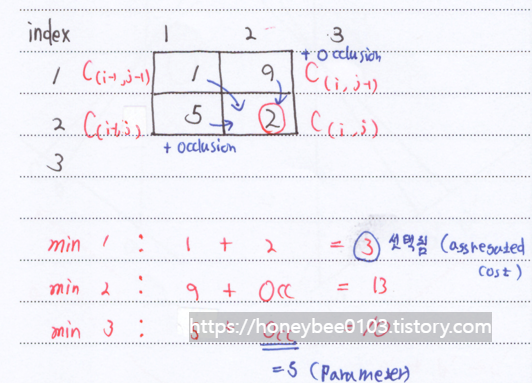 index 1 2 3
+ Occlusion
1 C(i-1, j-1) 1 9 C(i, j-1)
2 C(i-1, j) 5 2 C(i, j)
+ occlusion
3
min 1 : 1 + 2 = 3 선택됨 (aggregated cost)
min 2 : 9 + Occ = 13
min 3 : + Occ
https://honeybee0103.tistory.com
= 5 (Parameter)